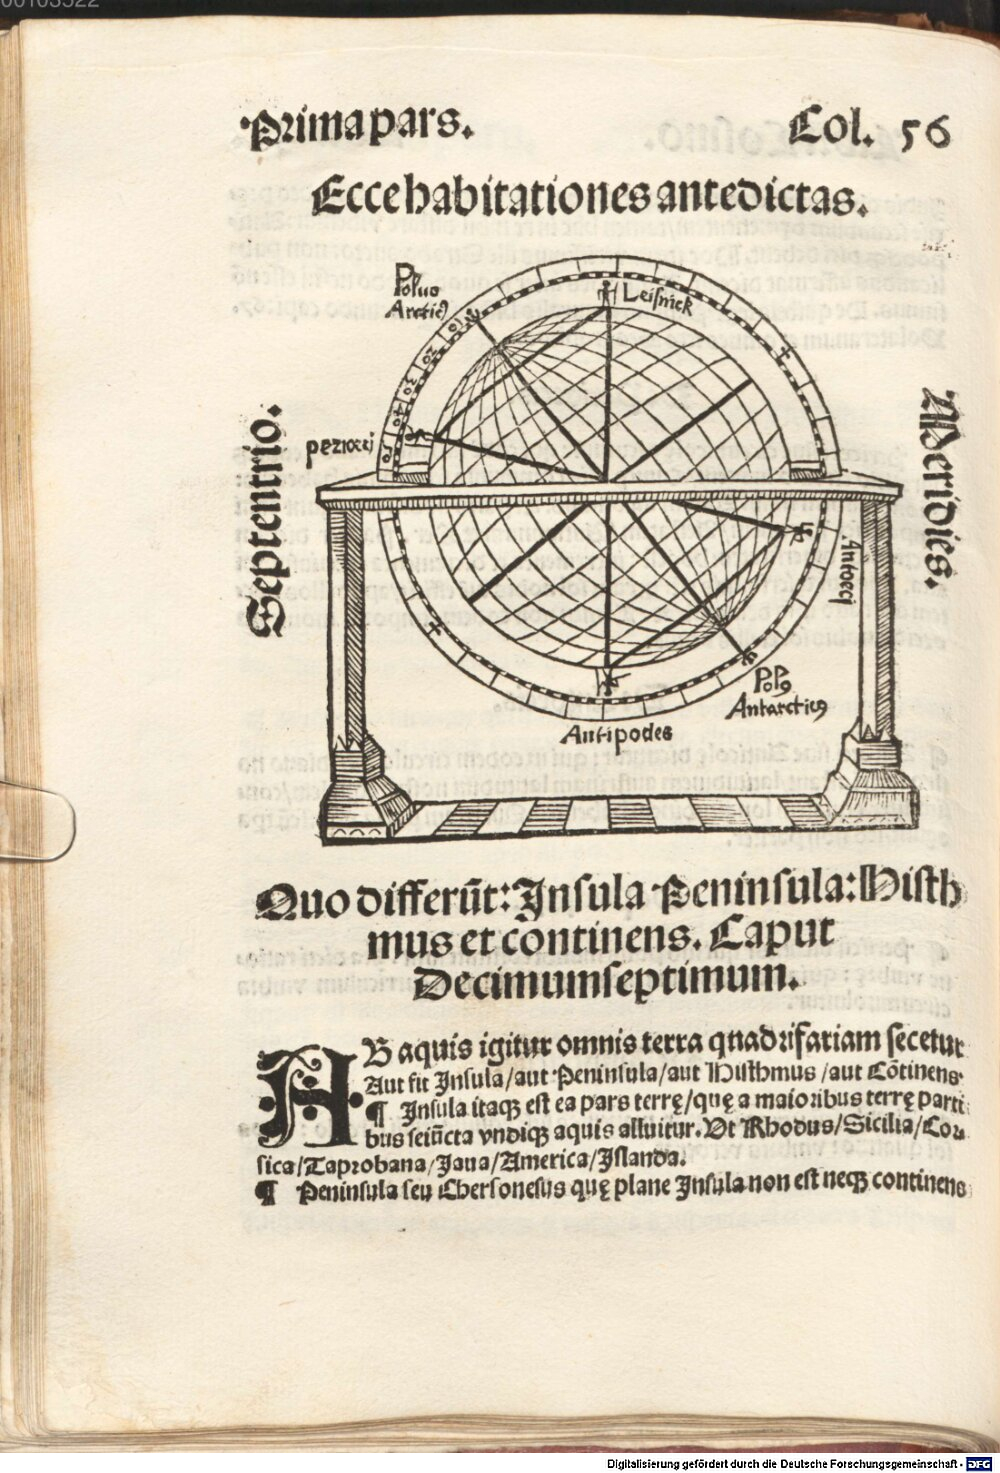 Prima pars. Col. 56
Ecce habitationes antedictas.
Polus
Arcticꝰ
Leisnick
perioeci
Septentrio.
Meridies.
Antoeci
Polꝰ
Antarcticꝰ
Antipodes
Quo differūt: Insula Peninsula: Histh
mus et continens. Caput
Decimumseptimum.
AB aquis igitur omnis terra quadrifariam secetur
Aut fit Insula/aut Peninsula/aut Histhmus/aut Cōtinens.
¶ Insula itaqꝫ est ea pars terrę/quę a maioribus terrę parti
bus seiūcta vndiqꝫ aquis alluitur. Vt Rhodus/Sicilia/Cor
sica/Taprobana/Jaua/America/Islanda.
¶ Peninsula seu Chersonesus quę plane Insula non est neqꝫ continens
Digitalisierung gefördert durch die Deutsche Forschungsgemeinschaft - DFG